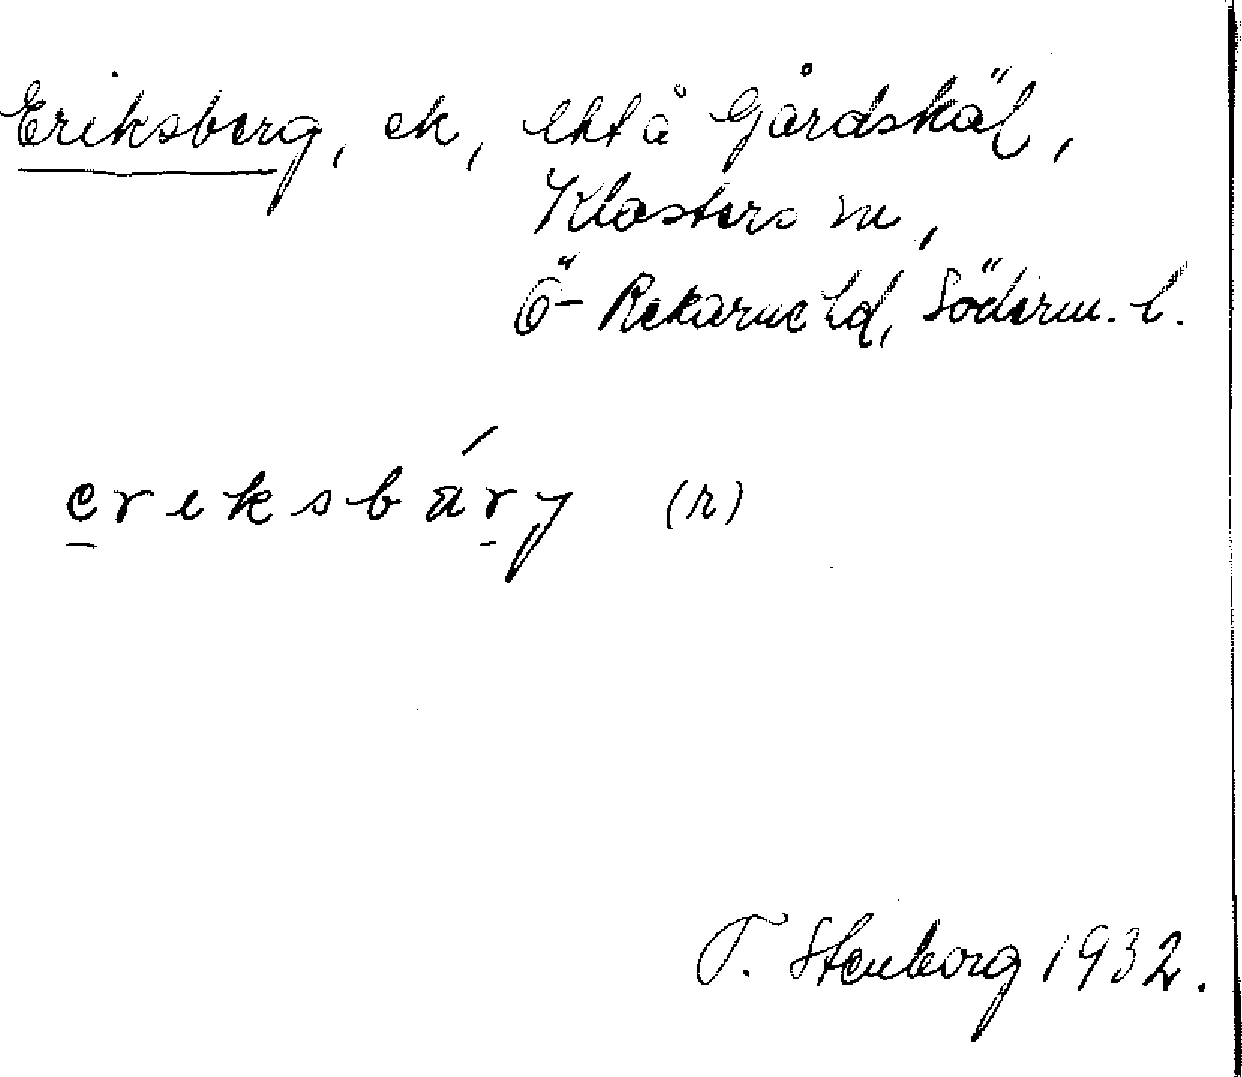 Eriksberg, ek, lht å Gårdskäl,
Klosters sn,
Ö-Rekarne hd, Söderm. l.
ereksbárj (r)
T. Stenborg 1932.